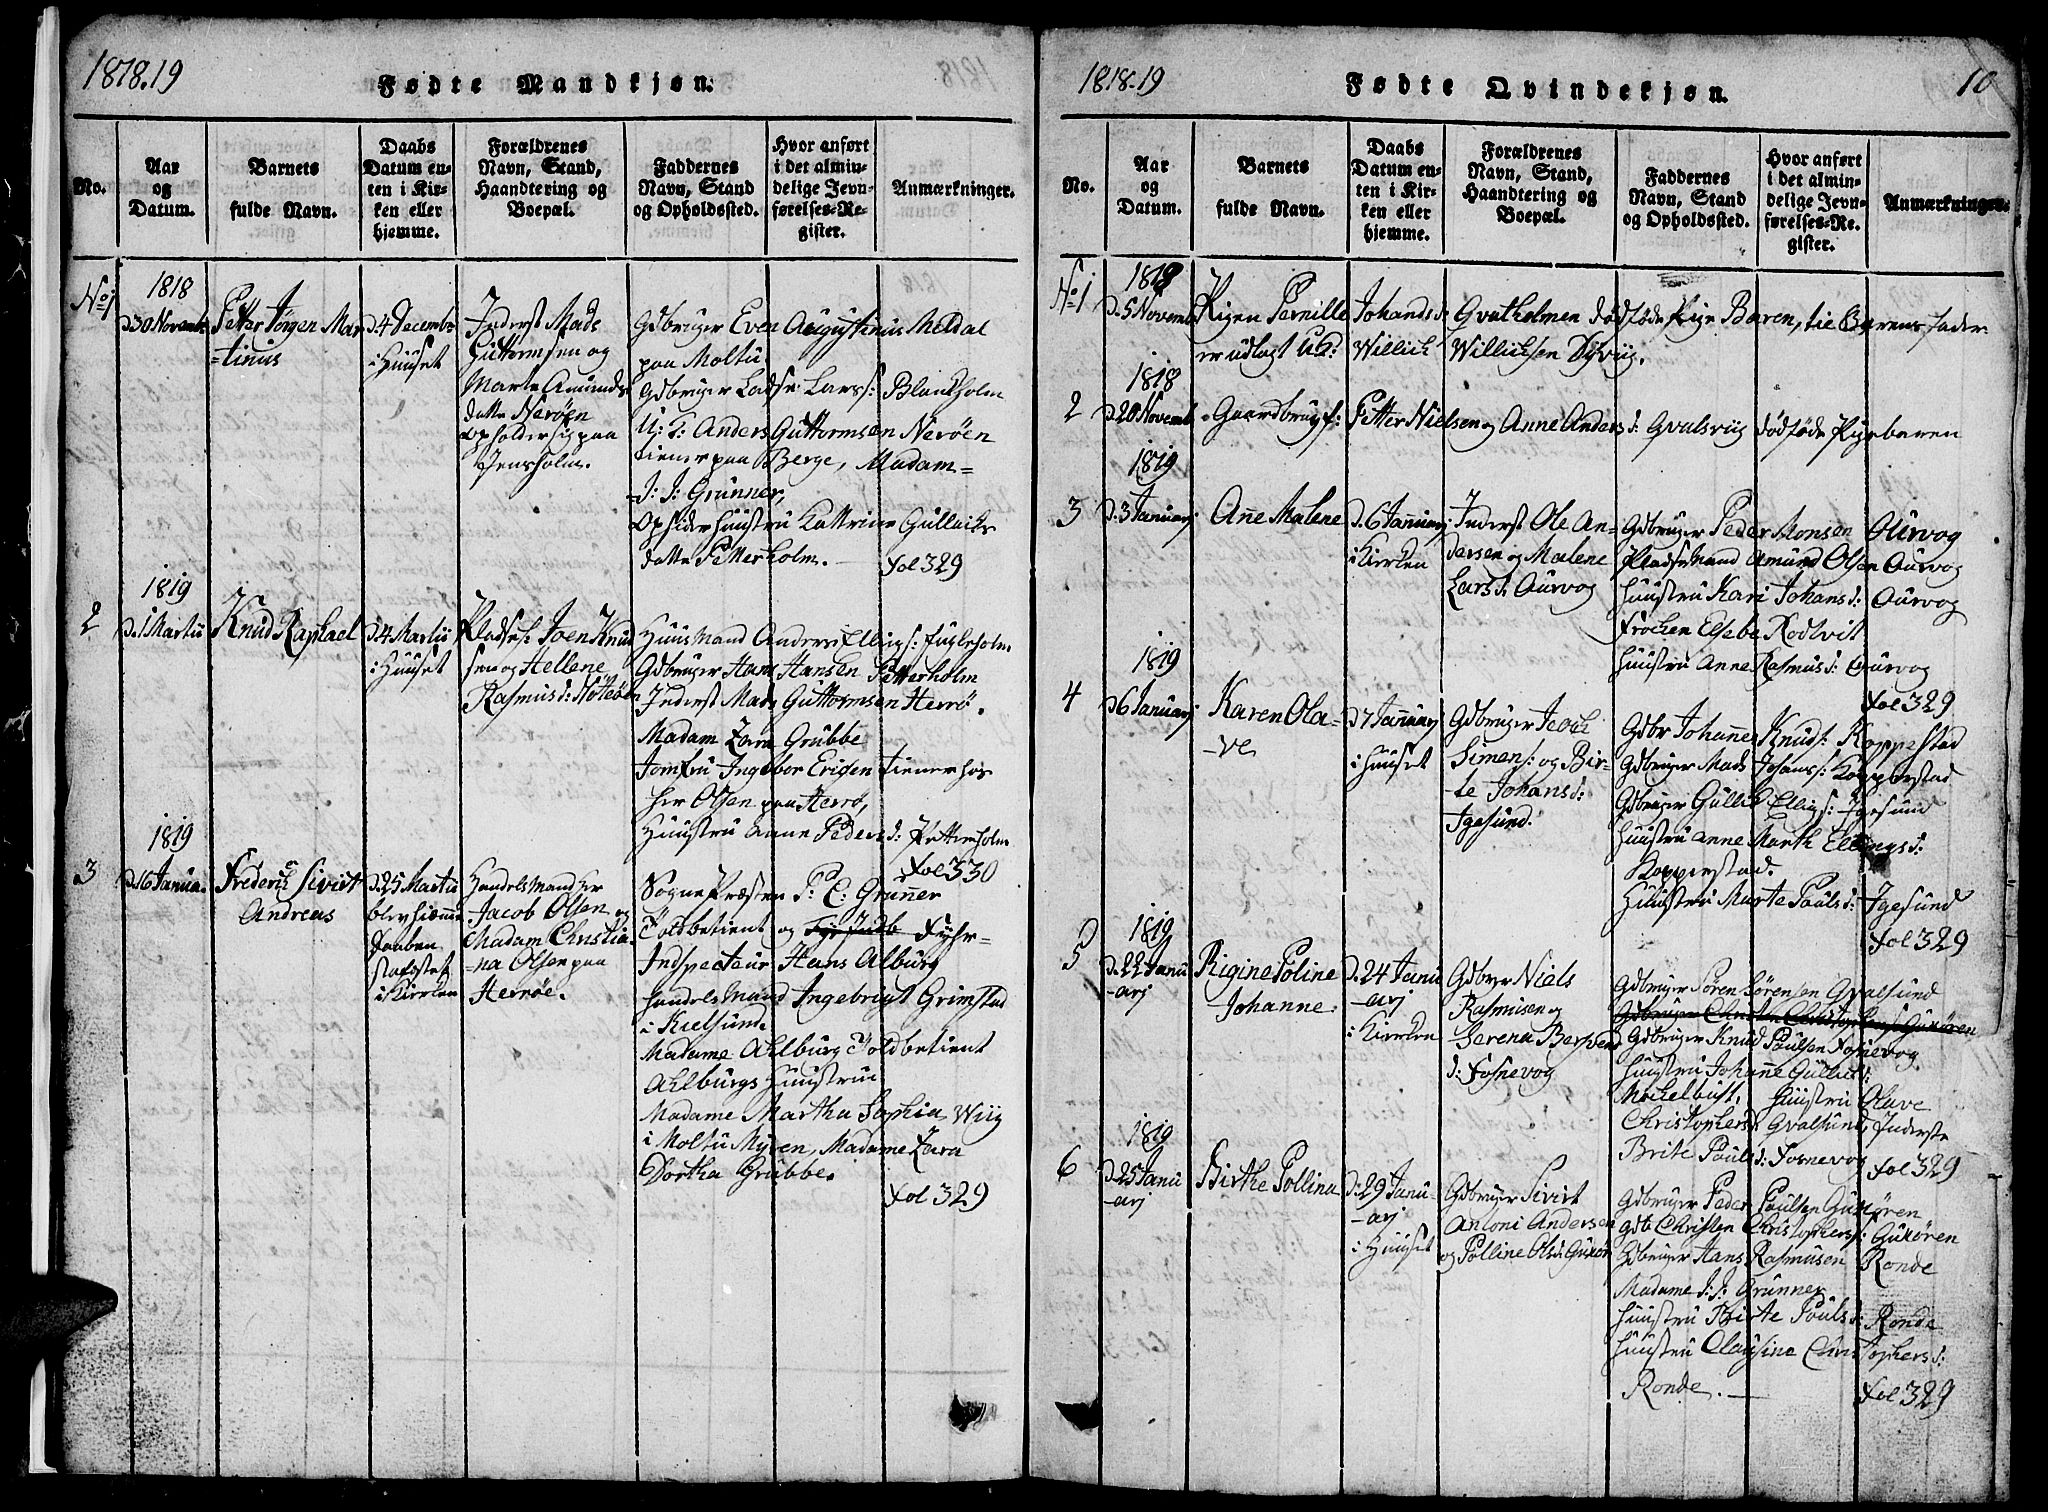 1818.19
Fødte Mandkjøn.
No.
Aar og Datum.
Barnets fulde Navn.
Daabs Datum enten i Kirken eller hjemme.
Forældrenes Navn, Stand, Haandtering og Boepæl.
Faddernes Navn, Stand og Opholdssted.
Hvor anført i det almindelige Jevnførelses-Register.
Anmærkninger.
No 1
1818
d. 30 Novemb:
Petter Jörgen Mar
=tinus
d. 4 Decemb:
i Huuset
Inderst Mads
Guttormsen og
Marte Amunds
datte Neröen
opholder sig paa
Jensholm.
Gdbruger Even Augustinus Meldal
paa Moltu.
Gdbruger Ladse Larss: Blankholm
U: K: Anders Guttormsen Neröen
tiener paa Berge, Madam=
=J: J: Grünner,
Opsider Huustru Kattrine Gullachs
datte Petterholm.
fol 329
2
1819
d. 1 Martii
Knud Raphael
d. 4 Martii
i Huuset
Pladsf: Joen Knud
sen og Hellene
Rasmusd: Nöteöen
Huusmand Anders Ellings: Fugleholm.
Gdbruger Hans Hansen Petterholm
Inderst Mads Guttormsen Herrö.
Madam Zara Grübbe
Jomfru Ingebor Ericsen tiener hos
Her Olsen paa Herrö,
Huustru Anne Peders d: Petterholm
fol 330
3
1819
d. 16 Janua.
Frederich Sivirt
Andreas
d. 25 Martii
blev hiemme
daaben
stafæstet
i Kirrken
Handelsmand her
Jacob Olsen og
Madam Christia
=na Olsen paa
Herröe.
Sogne Præsten P: C: Grünner
Toldbetient og Fyhr=
Indspecteur Hans Alburg
Handelsmand Ingebrigt Grimstad
i Kielsund.
Madame Ahlburg Toldbetient
Ahlburgs Huustrue
Madame Martha Sophia Wiig
i Moltu Myren, Madame Zara
Dortha Grübbe.
fol 329
1818.19
Fødte Qvindekjøn.
10
No.
Aar og Datum.
Barnets fulde Navn.
Daabs Datum enten i Kirken eller hjemme.
Forældrenes Navn, Stand, Haandtering og Boepæl.
Faddernes Navn, Stand og Opholdssted.
Hvor anført i det almindelige Jevnførelses-Register.
Anmærkninger.
No 1
1818
d. 5 Novemb
Pigen Pernille Johands d: Gvatholmen dödföde Pige Baren, til Barens fader
er udlagt U:K: Willich Willichsen Dyviig.
2
1818
d. 20 Novemb
Gaardbrugf: Petter Nielsen og Anne Anders d: Gvalsviig dödföde Pigebaren
3
1819
d. 3 Januarj
Anne Malene
d. 6 Januarj
i Kirrken
Inderst Ole An=
dersen og Malene
Larsd: Aurvog
Gdbruger Peder Monsen Aurvog
Pladsemand Amund Olsen Aurvog
Huustru Kari Johansd: Aurvog
Frocken Elsebe Rodtvit
Huustru Anne Rasmusd: Aurvog
fol 329
4
1819
d 6 Januarj
Karen Ola=
-ve
d 7 Januarj
i Huuset
Gdbruger Jacob
Simens: og Bir=
te Johansd:
Igesund.
Gdbr Johannes Knuds: Koppestad
Gdbruger Mads Johans: Kopperstad
Gdbruger Gullik Ellings: Igesund
Huustru Anne Marth Ellingsd:
Kopperstad.
Huustru Marte Pauls d: Igesund
fol 329
5
1819
d. 22 Janu
-arj
Rigine Poline
Johanne.
d. 24 Janu
-arj
i Kirrken
Gdbrger Niels
Rasmusen og
Serena
d: Fosnevog
Gdbruger Sören Sörensen Gvalsund
Gdbruger Knud Paulsen Fosnevog
Huustru Johanne Gullichd:
Mockelbust. Huustru Olave
Christophersd: Gvalsund, Inderste
Brite Pauls d: Fosnevog
fol 329
6
1819
d. 25 Janu
-arj
Birthe Pollina
d: 29 Janu-
-arj
i Huuset
Gdbruger Sivirt
Antoni Andersen
og Polline Olsd: Gurör
Gdbruger Peder Paulsen Gurören
Gdb Christen Christophers: Gurören
Gdbruger Hans Rasmusen Ronde
Madame J: J: Grünner
Huustru Birte Pauls d: Ronde
Huustru Olausine Christophers d:
Ronde.
fol 329